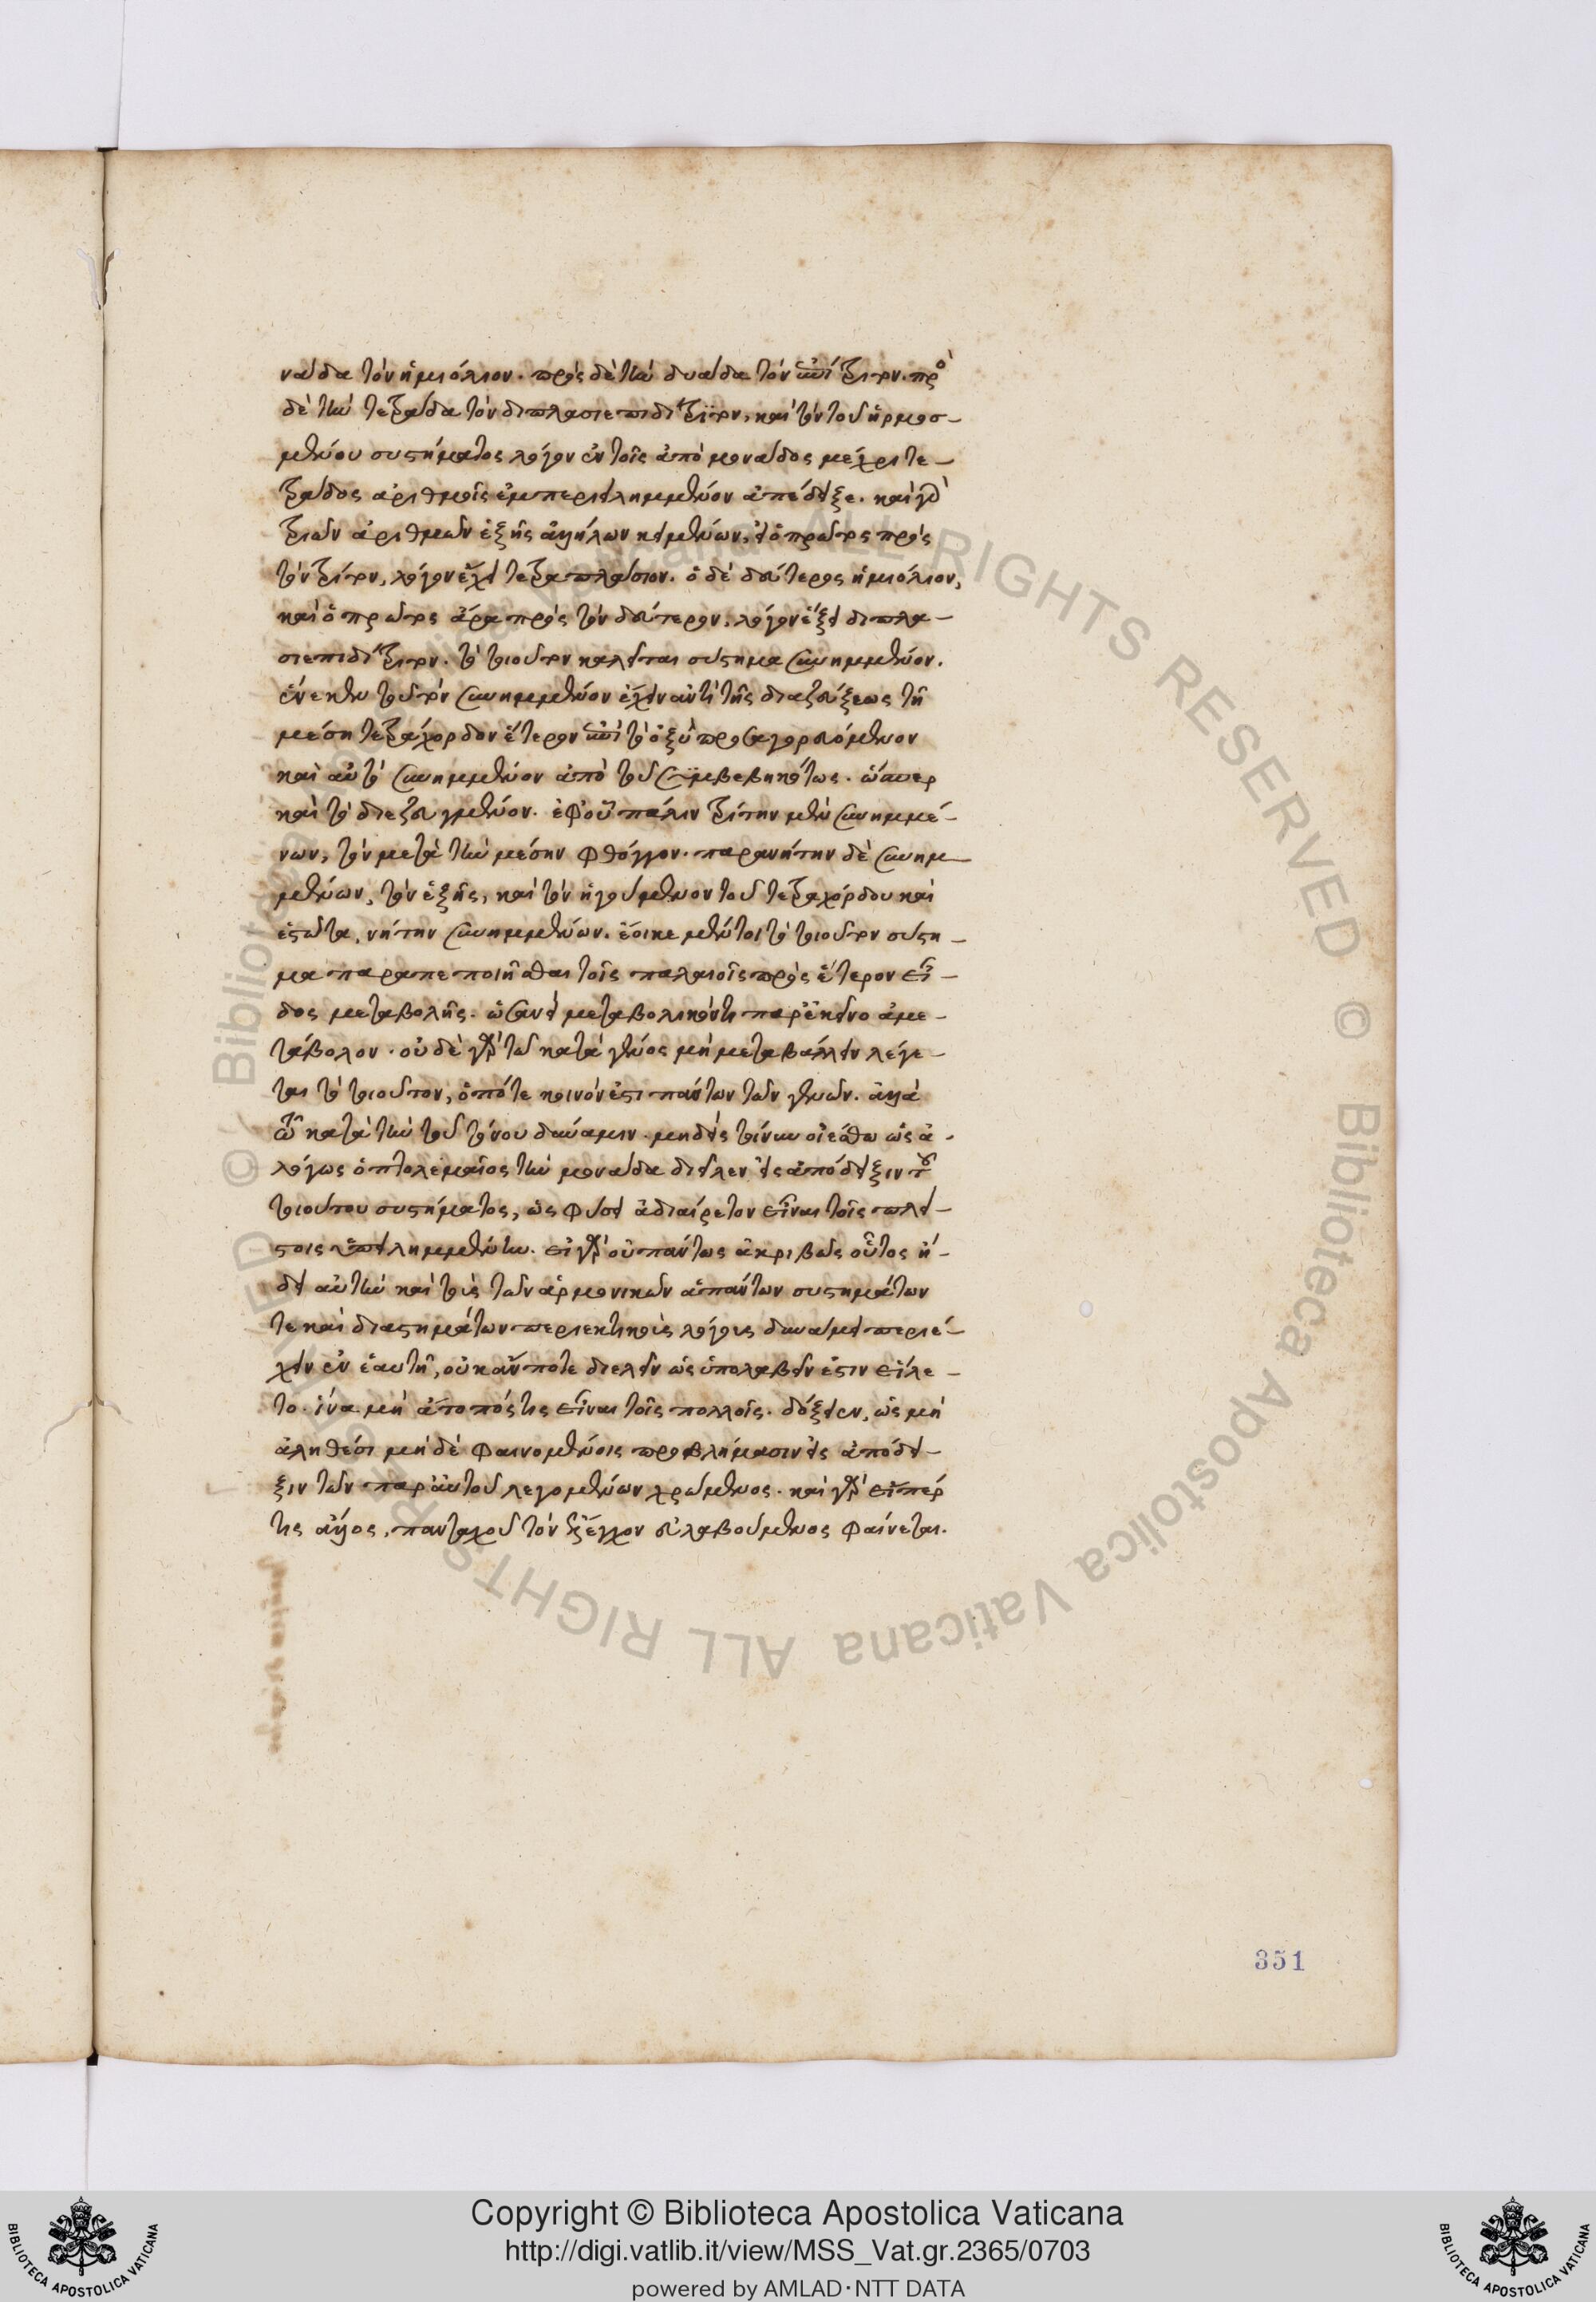 νάδα τὸν ἡμιόλιον. πρὸς δὲ τὴν δυάδα τὸν ἐπίτριτον. πρὸς
δὲ τὴν τετράδα τὸν διπλασιεπιδίτριτον, καὶ τὸν τοῦ ἡρμοσ-
μένου συστήματος λόγον ἐν τοῖς ἀπὸ μονάδος μέχρι τε-
τράδος ἀριθμοῖς ἐμπεριειλημμένον ἀπέδειξε. καὶ γὰρ
τριῶν ἀριθμῶν ἑξῆς ἀλλήλων κειμένων, εἰ ὁ πρῶτος πρὸς
τὸν τρίτον, λόγον ἔχει τετραπλάσιον. ὁ δὲ δεύτερος ἡμιόλιον,
καὶ ὁ πρῶτος ἄρα πρὸς τὸν δεύτερον, λόγον ἕξει διπλα-
σιεπιδίτριτον. τὸ τοιοῦτον καλεῖται σύστημα συνημμένον.
ἕνεκεν τοῦ τὸν συνημμένον ἔχειν ἀντὶ τῆς διαζεύξεως τῇ
μέσῃ τετράχορδον ἕτερον ἐπὶ τὸ ὀξὺ προσαγορευόμενον
καὶ αὐτὸ συνημμένον ἀπὸ τοῦ συμβεβηκότως. ὥσπερ
καὶ τὸ διεζευγμένον. ἐφ' οὗ πάλιν τρίτην μὲν συνημμέ-
νων, τὸν μετὰ τὴν μέσην φθόγγον. παρανήτην δὲ συνημ
μένων, τὸν ἑξῆς, καὶ τὸν ἡγούμενον τοῦ τετραχόρδου καὶ
ἑστῶτα, νήτην συνημμένων. ἔοικε μέντοι τὸ τοιοῦτον σύστη-
μα παραπεποιῆσθαι τοῖς παλαιοῖς πρὸς ἕτερον εἶ-
δος μεταβολῆς. ὡσανεὶ μεταβολικόν τι παρ' ἐκεῖνο ἀμε-
τάβολον. οὐδὲ γὰρ τῷ κατὰ γένος μὴ μεταβάλλειν λέγε-
ται τὸ τοιοῦτον, ὁπότε κοινόν ἐστι πάντων τῶν γενῶν. ἀλλὰ
τῷ κατὰ τὴν τοῦ τόνου δύναμιν. μηδεὶς τοίνυν οἰέσθω ὡς ἀ-
λόγως ὁ πτολεμαῖος τὴν μονάδα διεῖλεν εἰς ἀπόδειξιν τοῦ
τοιούτου συστήματος, ὡς φύσει ἀδιαίρετον εἶναι τοῖς πλεί-
στοις ὑπειλημμένην. εἰ γὰρ οὐ πάντως ἀκριβῶς οὗτος ᾔ-
δει αὐτὴν καὶ τοὺς τῶν ἁρμονικῶν ἁπάντων συστημάτων
τε καὶ διαστημάτων περιεκτικοὺς λόγους δυνάμει περιέ-
χειν ἐν ἑαυτῇ, οὐκ ἄν ποτε διελεῖν ὡς ὑπολαβεῖν ἔστιν εἵλε-
το. ἵνα μὴ ἄτοπός τις εἶναι τοῖς πολλοῖς. δόξειεν, ὡς μὴ
ἀληθέσι μὴ δὲ φαινομένοις προβλήμασιν εἰς ἀπόδει-
ξιν τῶν παρ' αὐτοῦ λεγομένων χρώμενος. καὶ γὰρ εἴπέρ
τις ἄλλος, πανταχοῦ τὸν ἔλεγχον εὐλαβούμενος φαίνεται.
351
Copyright © Biblioteca Apostolica Vaticana
http://digi.vatlib.it/view/MSS_Vat.gr.2365/0703
powered by AMLAD·NTT DATA